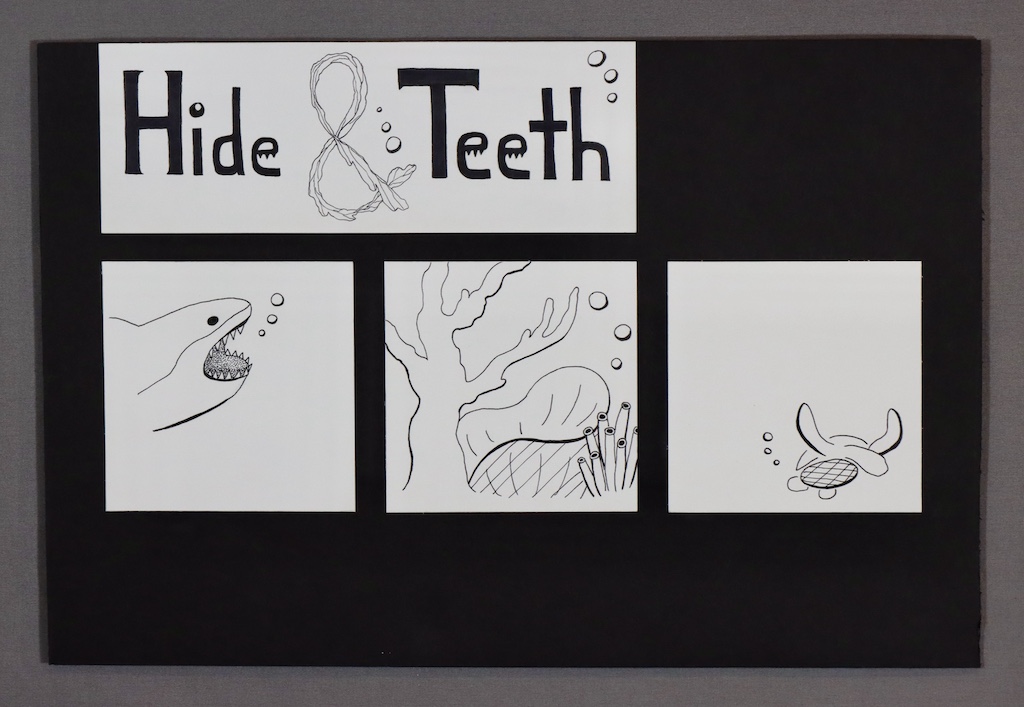 Hide & Teeth